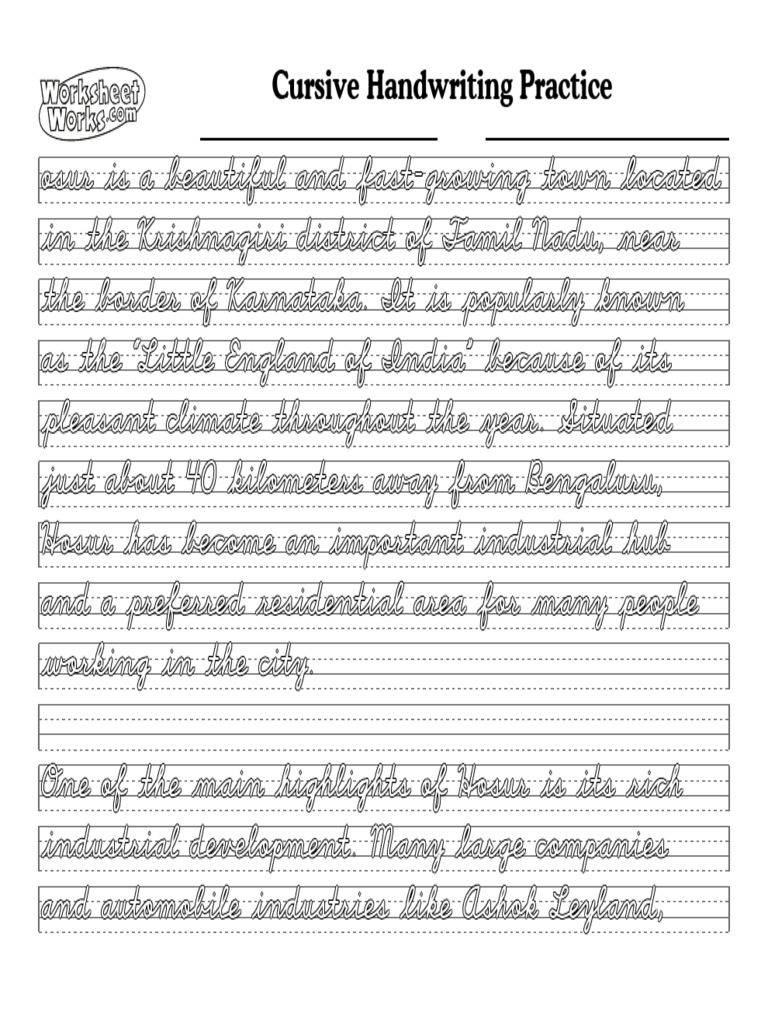 Worksheet
Works.com
Cursive Handwriting Practice
osur is a beautiful and fast-growing town located
in the Krishnagiri district of Tamil Nadu, near
the border of Karnataka. It is popularly known
as the "Little England of India" because of its
pleasant climate throughout the year. Situated
just about 40 kilometers away from Bengaluru,
Hosur has become an important industrial hub
and a preferred residential area for many people
working in the city.
One of the main highlights of Hosur is its rich
industrial development. Many large companies
and automobile industries like Ashok Leyland,